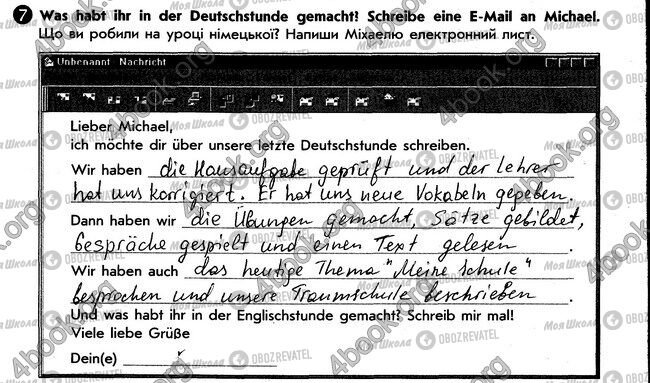 7 Was habt ihr in der Deutschstunde gemacht? Schreibe eine E-Mail an Michael.
Що ви робили на уроці німецької? Напиши Міхаелю електронний лист.
Unbenannt - Nachricht
Lieber Michael,
ich möchte dir über unsere letzte Deutschstunde schreiben.
Wir haben die Hausaufgabe geprüft und der Lehrer
hat uns korrigiert. Er hat uns neue Vokabeln gegeben.
Dann haben wir die Übungen gemacht, Sätze gebildet,
Gespräche gespielt und einen Text gelesen.
Wir haben auch das heutige Thema "Meine Schule"
besprochen und unsere Traumschule beschrieben.
Und was habt ihr in der Englischstunde gemacht? Schreib mir mal!
Viele liebe Grüße
Dein(e)